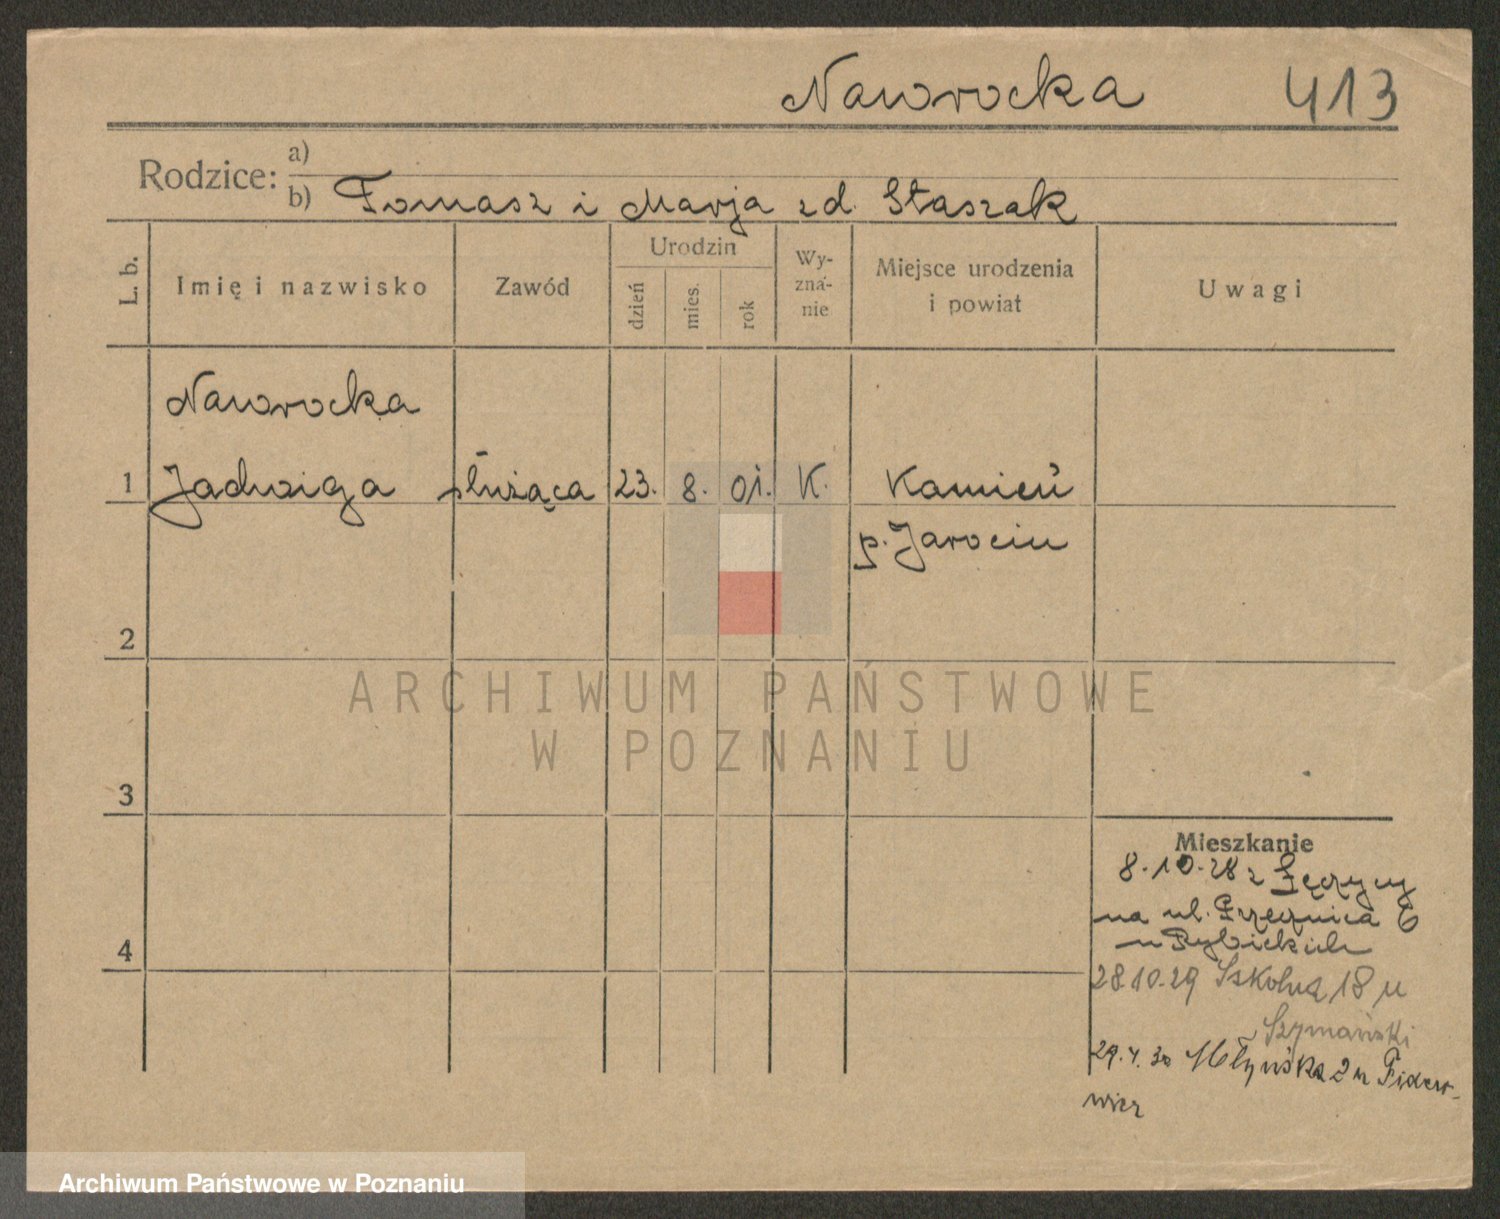 Naworocka 413
Rodzice: a)
b) Tomasz i Marja zd. Staszak
L. b. Imię i nazwisko Zawód Urodzin dzień mies. rok Wy-zna-nie Miejsce urodzenia i powiat Uwagi
Naworocka
1 Jadwiga służąca 23. 8. 01. K. Kamień
p. Jarocin
2
ARCHIWUM PAŃSTWOWE
W POZNANIU
3
Mieszkanie
8.10.28 z
na ul. 6
4 u Rybickich
28.10.29 Szkolna 18 u
Szymański
29.4.30 Młyńska 2 u
Archiwum Państwowe w Poznaniu